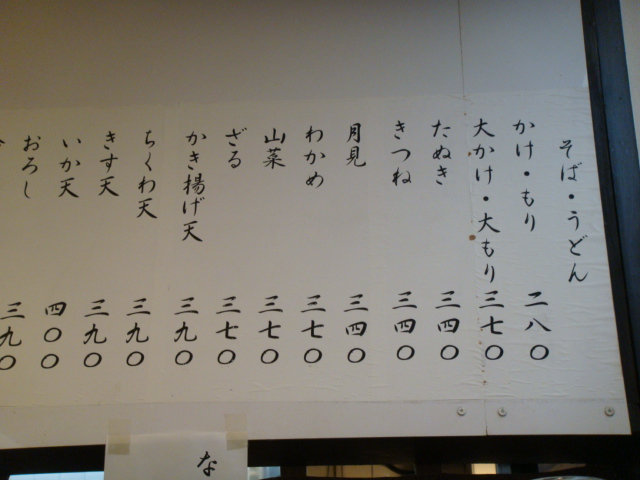 そば・うどん
かけ・もり 二八〇
大かけ・大もり 三七〇
たぬき 三四〇
きつね 三四〇
月見 三四〇
わかめ 三七〇
山菜 三七〇
ざる 三七〇
かき揚げ天 三九〇
ちくわ天 三九〇
きす天 三九〇
いか天 四〇〇
おろし 三九〇
な